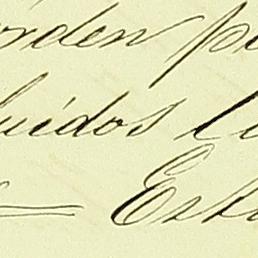 orden p
luidos l
= Est